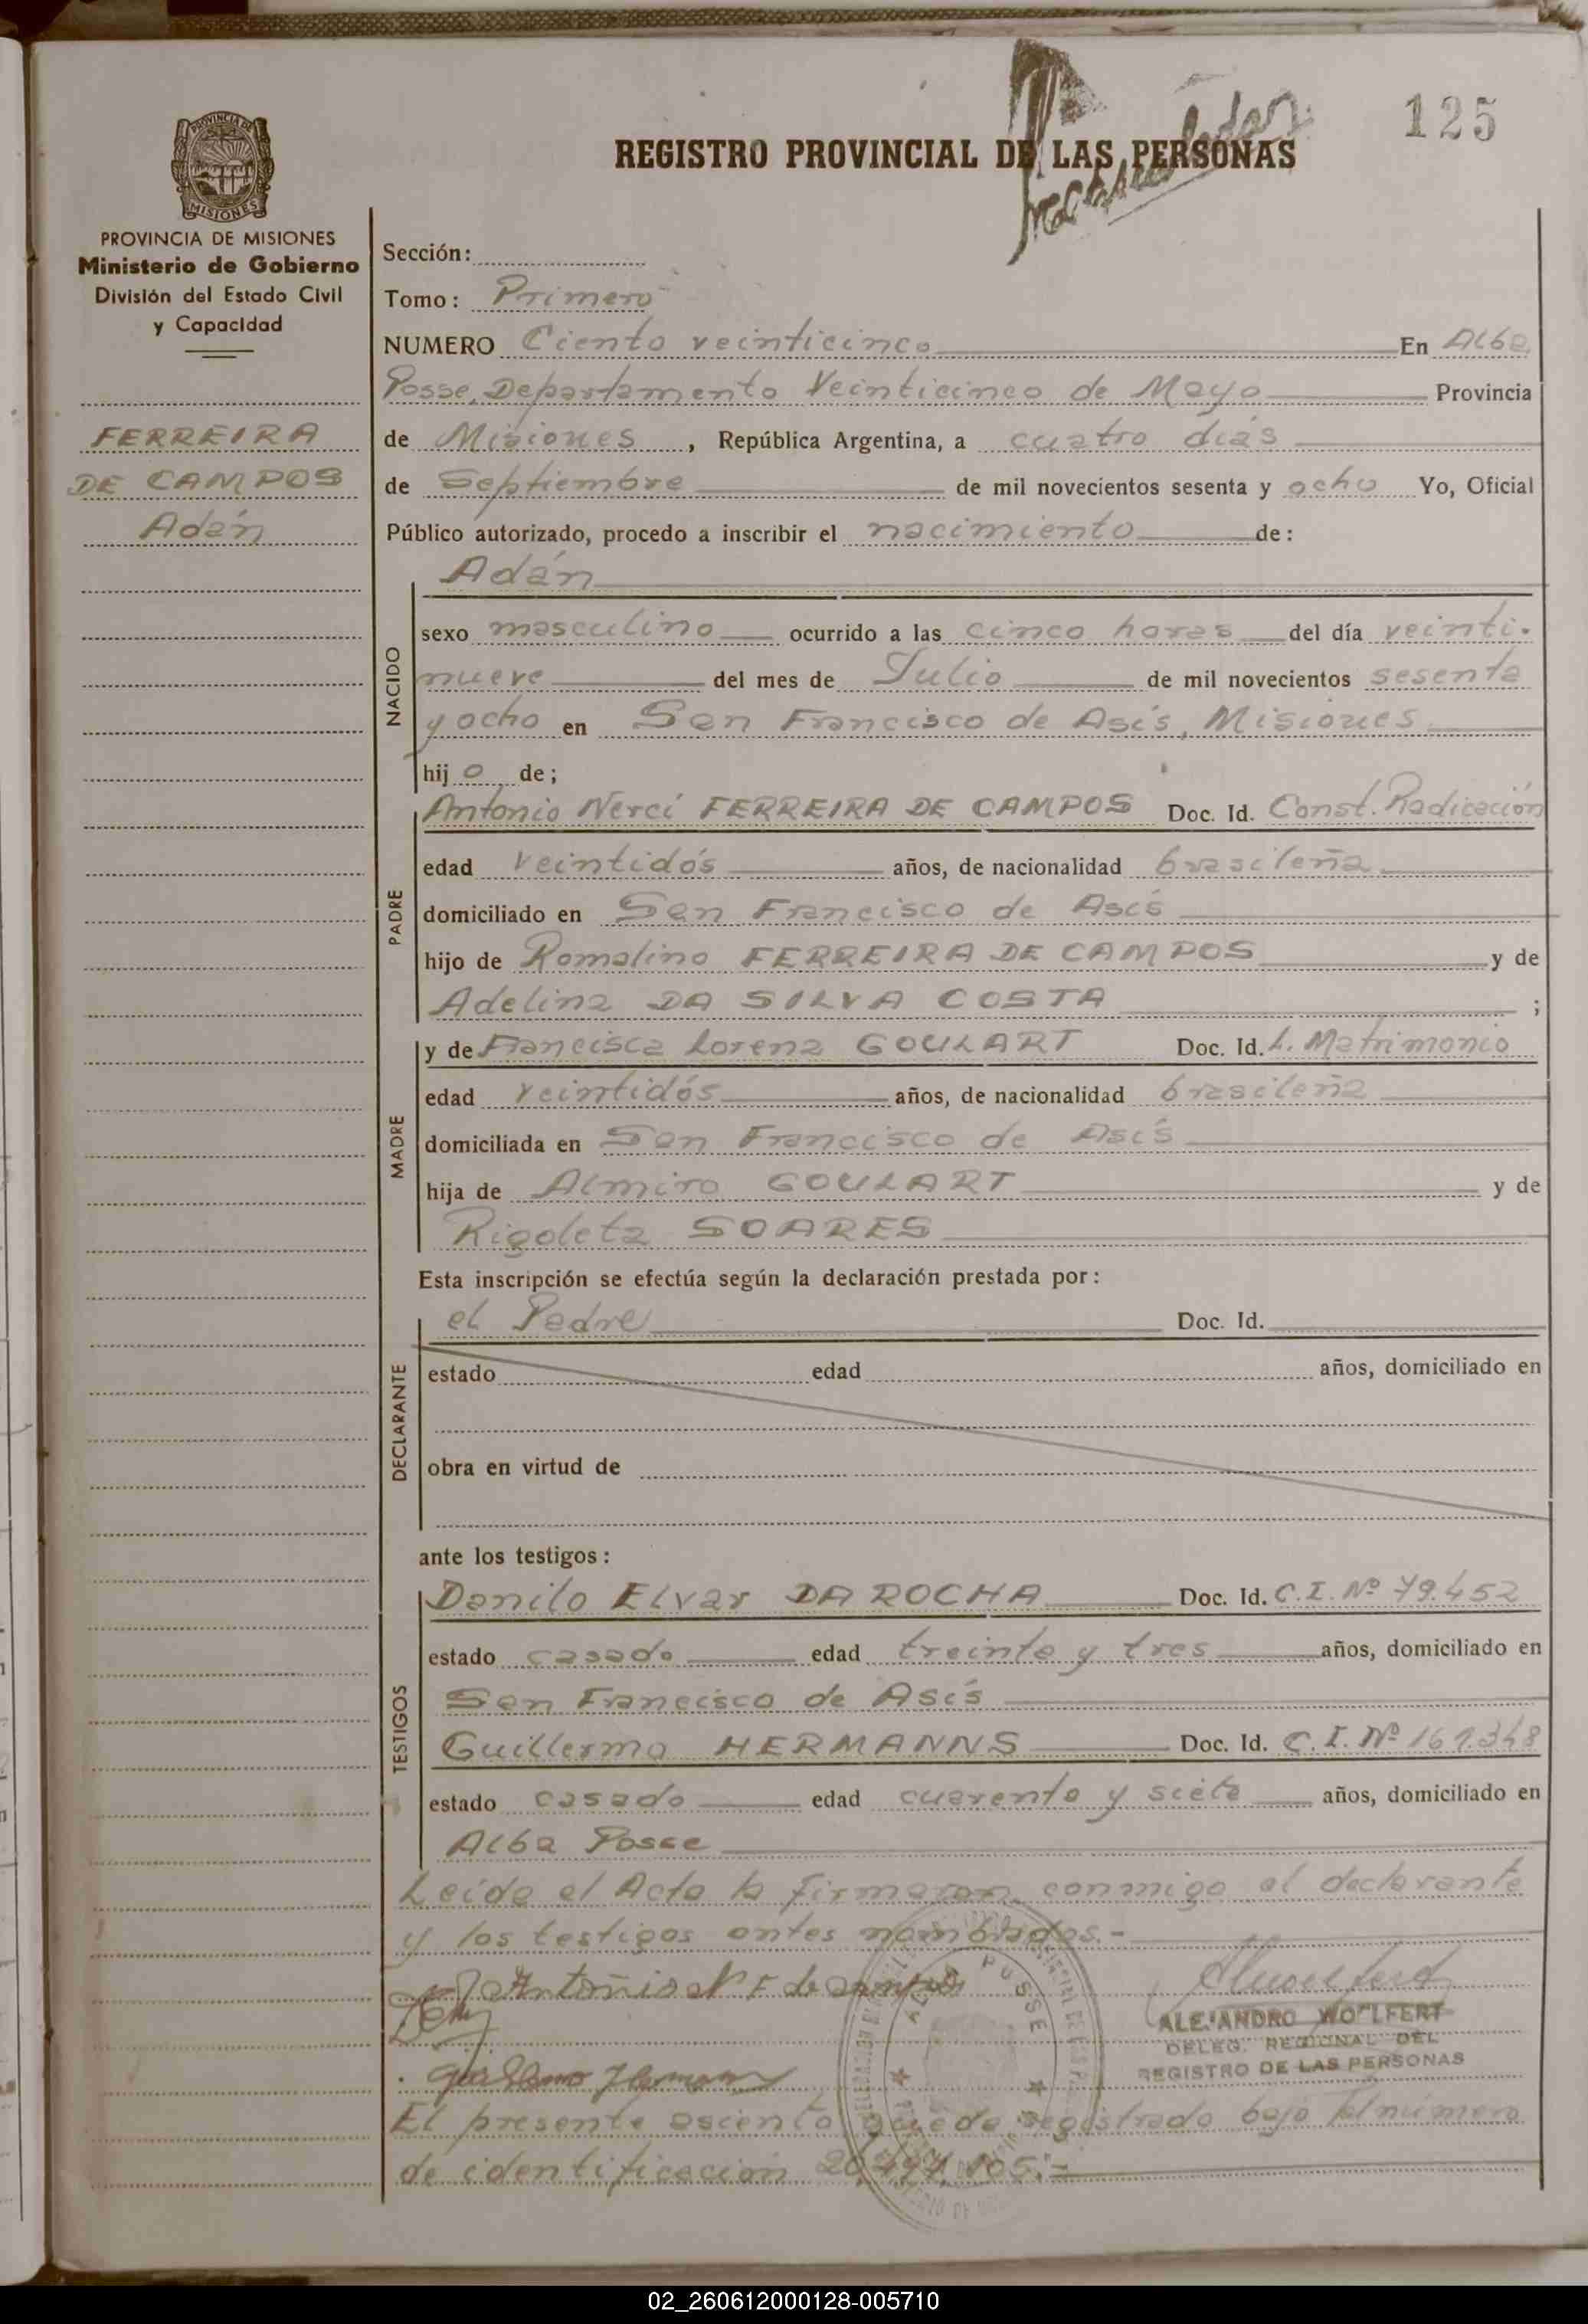 125
REGISTRO PROVINCIAL DE LAS PERSONAS
PROVINCIA DE
MISIONES
PROVINCIA DE MISIONES
Ministerio de Gobierno
División del Estado Civil
y Capacidad
FERREIRA
DE CAMPOS
Adán
Sección:
Tomo: Primero
NUMERO Ciento veinticinco En Alba
Posse, Departamento Veinticinco de Mayo Provincia
de Misiones, República Argentina, a cuatro días
de Septiembre de mil novecientos sesenta y ocho Yo, Oficial
Público autorizado, procedo a inscribir el nacimiento de:
Adán
NACIDO
sexo masculino ocurrido a las cinco horas del día veinti-
nueve del mes de Julio de mil novecientos sesenta
y ocho en San Francisco de Asís, Misiones
hij o de;
PADRE
Antonio Nerci FERREIRA DE CAMPOS Doc. Id. Const. Radicación
edad veintidós años, de nacionalidad brasileña
domiciliado en San Francisco de Asís
hijo de Romalino FERREIRA DE CAMPOS y de
Adelina DA SILVA COSTA ;
MADRE
y de Francisca Lorena GOULART Doc. Id. L. Matrimonio
edad veintidós años, de nacionalidad brasileña
domiciliada en San Francisco de Asís
hija de Almiro GOULART y de
Rigoleta SOARES
Esta inscripción se efectúa según la declaración prestada por:
DECLARANTE
el Padre Doc. Id.
estado edad años, domiciliado en
obra en virtud de
ante los testigos:
TESTIGOS
Danilo Elvar DA ROCHA Doc. Id. C.I. Nº 79.452
estado casado edad treinta y tres años, domiciliado en
San Francisco de Asís
Guillermo HERMANNS Doc. Id. C.I. Nº 161.348
estado casado edad cuarenta y siete años, domiciliado en
Alba Posse
Leída el Acta la firmaron conmigo el declarante
y los testigos antes nombrados.-
Antonio N F de campos
ALEJANDRO WOLFERT
DELEG. REGIONAL DEL
REGISTRO DE LAS PERSONAS
ALBA POSSE
El presente asiento queda registrado bajo el número
de identificación
02_260612000128-005710